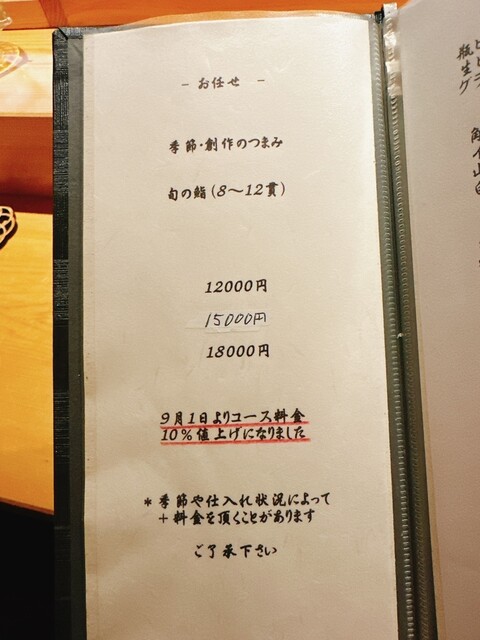 - お任せ -
季節・創作のつまみ
旬の鮨(8〜12貫)
12000円
15000円
18000円
9月1日よりコース料金
10%値上げになりました
*季節や仕入れ状況によって
+料金を頂くことがあります
ご了承下さい